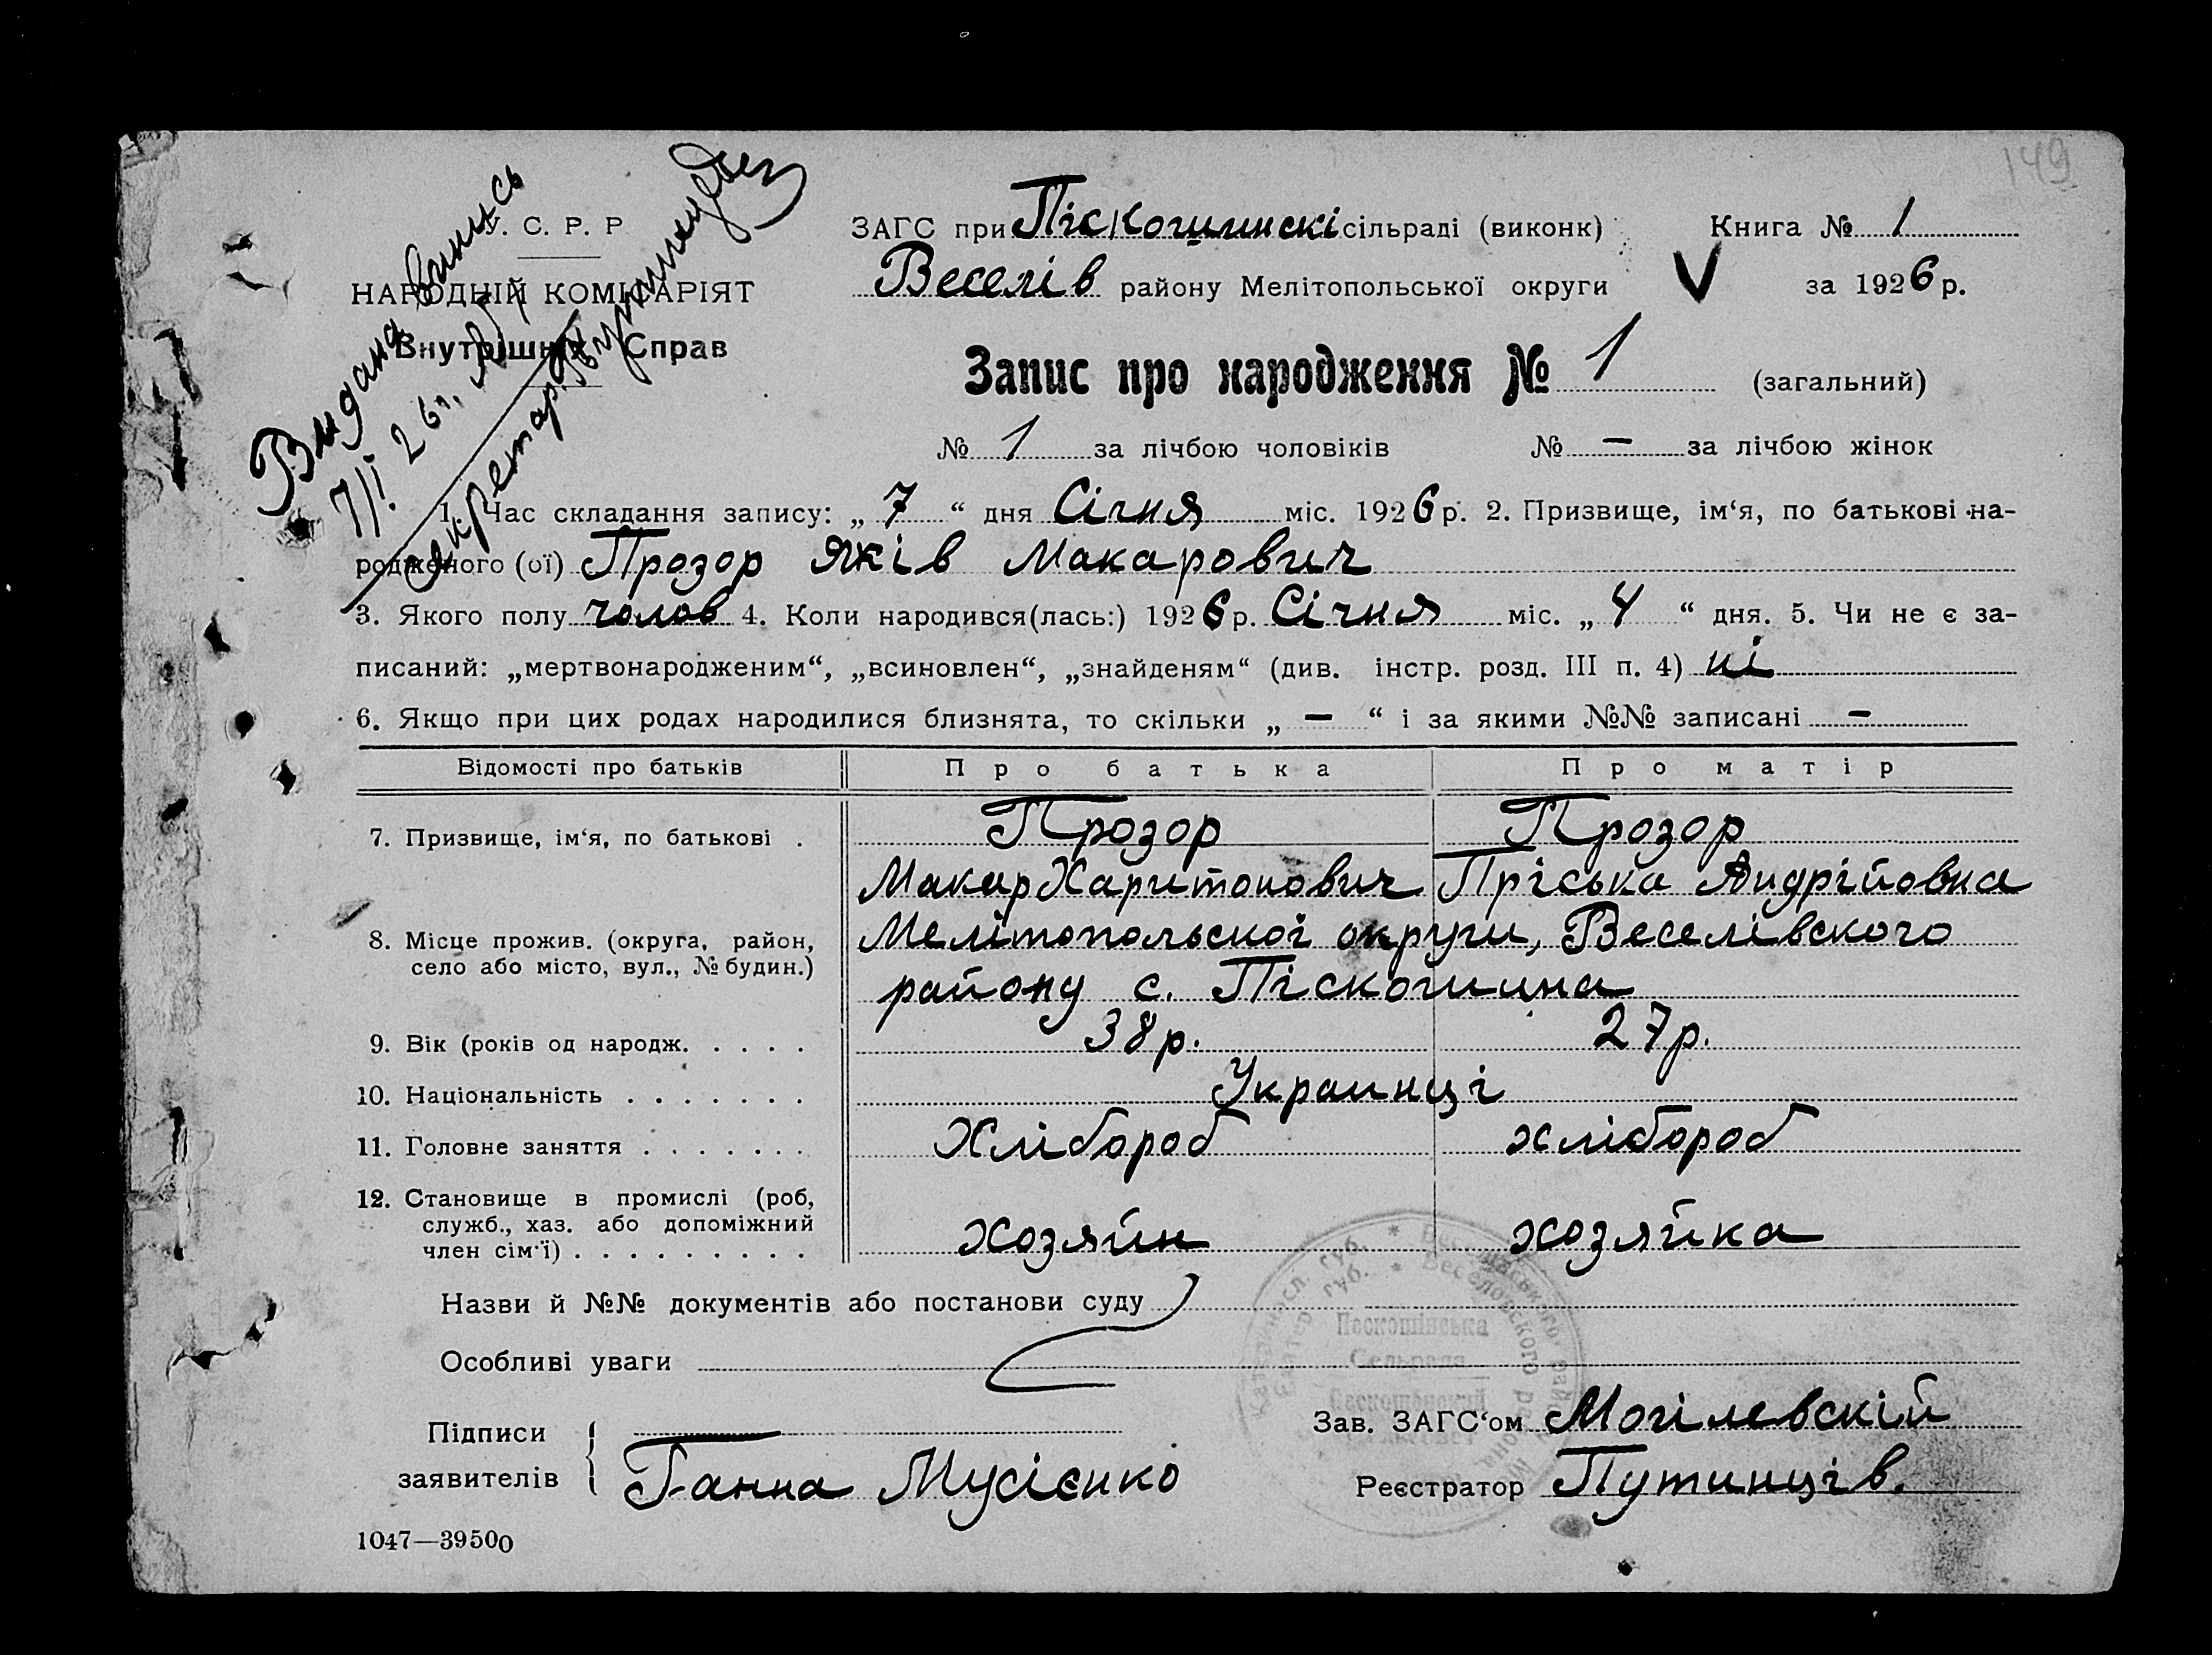 149
Видана випись
7/I 26 р. № 1
Секретар
У. С. Р. Р.
НАРОДНІЙ КОМІСАРІЯТ
Внутрішніх Справ
ЗАГС при Піскошинскі сільраді (виконк)
Книга № 1
Веселів району Мелітопольської округи
V
за 1926 р.
Запис про народження № 1 (загальний)
№ 1 за лічбою чоловіків № — за лічбою жінок
1. Час складання запису: „ 7 “ дня Січня міс. 1926 р. 2. Призвище, ім‘я, по батькові на-
родженого (ої) Прозор Яків Макарович
3. Якого полу чолов 4. Коли народився(лась:) 1926 р. Січня міс. „ 4 “ дня. 5. Чи не є за-
писаний: „мертвонародженим“, „всиновлен“, „знайденям“ (див. інстр. розд. III п. 4) ні
6. Якщо при цих родах народилися близнята, то скільки „ — “ і за якими №№ записані —
Відомості про батьків Про батька Про матір
7. Призвище, ім‘я, по батькові . Прозор Прозор
Макар Харитонович Пріська Андрійовна
8. Місце прожив. (округа, район, Мелітопольскої округи, Веселівского
село або місто, вул., № будин.) району с. Піскошина
9. Вік (років од народж. . . . . 38 р. 27 р.
10. Національність . . . . . . . Украинці
11. Головне заняття . . . . . . . Хлібороб хлібороб
12. Становище в промислі (роб,
служб., хаз. або допоміжний
член сім‘ї) . . . . . . . . . хозяйн хозяйка
Назви й №№ документів або постанови суду
Особливі уваги
Підписи
заявителів
Ганна Мусієнко
Зав. ЗАГС‘ом Могілевскій
Реєстратор Путинців.
Сельрада
1047—39500